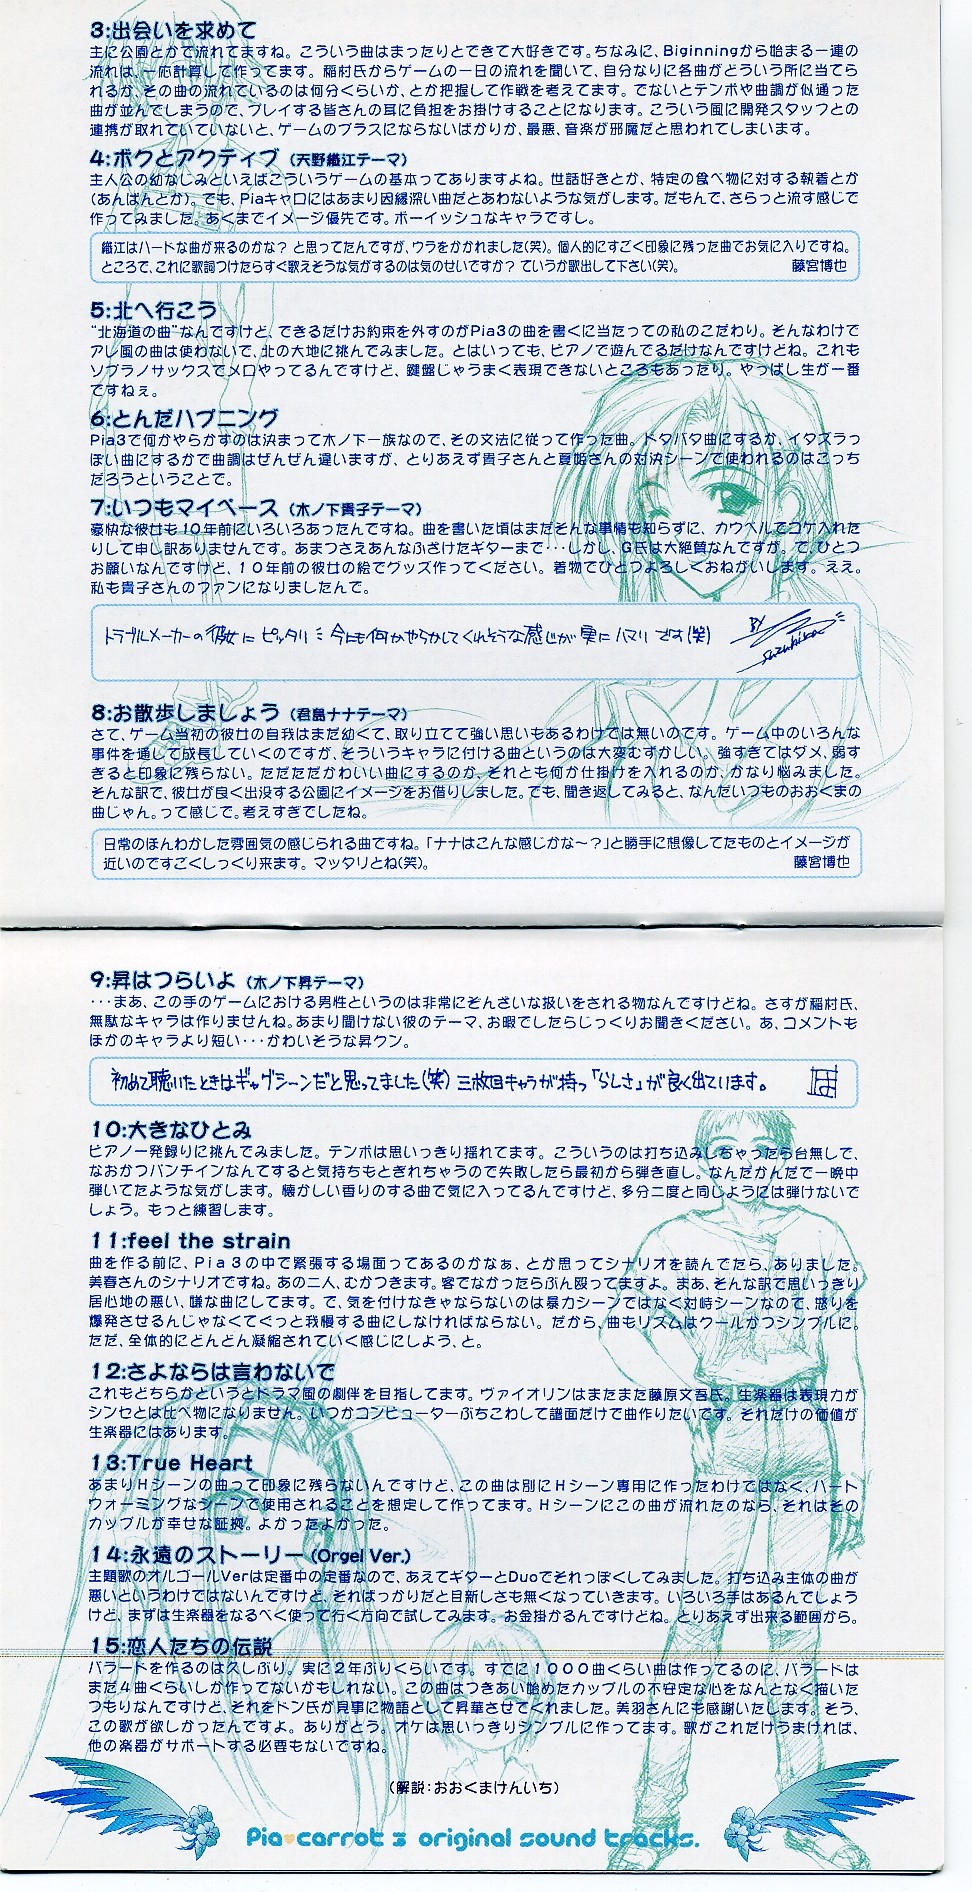 3:出会いを求めて
主に公園とかで流れてますね。こういう曲はまったりとできて大好きです。ちなみに、Biginningから始まる一連の
流れは、一応計算して作ってます。稲村氏からゲームの一日の流れを聞いて、自分なりに各曲がどういう所に当てら
れるか、その曲の流れているのは何分くらいか、とか把握して作戦を考えてます。でないとテンポや曲調が似通った
曲が並んでしまうので、プレイする皆さんの耳に負担をお掛けすることになります。こういう風に開発スタッフとの
連携が取れていていないと、ゲームのプラスにならないばかりか、最悪、音楽が邪魔だと思われてしまいます。
4:ボクとアクティブ（天野織江テーマ）
主人公の幼なじみといえばこういうゲームの基本ってありますよね。世話好きとか、特定の食べ物に対する執着とか
(あんぱんとか)。でも、Piaキャロにはあまり因縁深い曲だとあわないような気がします。だもんで、さらっと流す感じで
作ってみました。あくまでイメージ優先です。ボーイッシュなキャラですし。
織江はハードな曲が来るのかな？と思ってたんですが、ウラをかかれました(笑)。個人的にすごく印象に残った曲でお気に入りですね。
ところで、これに歌詞つけたらすぐ歌えそうな気がするのは気のせいですか？ていうか歌出して下さい(笑)。 藤宮博也
5:北へ行こう
“北海道の曲”なんですけど、できるだけお約束を外すのがPia3の曲を書くに当たっての私のこだわり。そんなわけで
アレ風の曲は使わないで、北の大地に挑んでみました。とはいっても、ピアノで遊んでるだけなんですけどね。これも
ソプラノサックスでメロやってるんですけど、鍵盤じゃうまく表現できないところもあったり。やっぱし生が一番
ですねぇ。
6:とんだハプニング
Pia3で何かやらかすのは決まって木ノ下一族なので、その文法に従って作った曲。ドタバタ曲にするか、イタズラっ
ぽい曲にするかで曲調はぜんぜん違いますが、とりあえず貴子さんと夏姫さんの対決シーンで使われるのはこっち
だろうということで。
7:いつもマイペース（木ノ下貴子テーマ）
豪快な彼女も１０年前にいろいろあったんですね。曲を書いた頃はまだそんな事情も知らずに、カウベルでコケ入れた
りして申し訳ありませんです。あまつさえあんなふざけたギターまで・・・しかし、G氏は大絶賛なんですが。で、ひとつ
お願いなんですけど、１０年前の彼女の絵でグッズ作ってください。着物でひとつよろしくおねがいします。ええ。
私も貴子さんのファンになりましたんで。
トラブルメーカーの彼女にピッタリ！今にも何かやらかしてくれそうな感じが実にハマリです(笑)
BY
8:お散歩しましょう（君島ナナテーマ）
さて、ゲーム当初の彼女の自我はまだ幼くて、取り立てて強い思いもあるわけでは無いのです。ゲーム中のいろんな
事件を通して成長していくのですが、そういうキャラに付ける曲というのは大変むずかしい。強すぎてはダメ、弱す
ぎると印象に残らない。ただただかわいい曲にするのか、それとも何か仕掛けを入れるのか、かなり悩みました。
そんな訳で、彼女が良く出没する公園にイメージをお借りしました。でも、聞き返してみると、なんだいつものおおくまの
曲じゃん。って感じで。考えすぎでしたね。
日常のほんわかした雰囲気の感じられる曲ですね。「ナナはこんな感じかな～？」と勝手に想像してたものとイメージが
近いのですごくしっくり来ます。マッタリとね(笑)。 藤宮博也
9:昇はつらいよ（木ノ下昇テーマ）
・・・まあ、この手のゲームにおける男性というのは非常にぞんざいな扱いをされる物なんですけどね。さすが稲村氏、
無駄なキャラは作りませんね。あまり聞けない彼のテーマ、お暇でしたらじっくりお聞きください。あ、コメントも
ほかのキャラより短い・・・かわいそうな昇クン。
初めて聴いたときはギャグシーンだと思ってました(笑)三枚目キャラが持つ「らしさ」が良く出ています。
10:大きなひとみ
ピアノ一発録りに挑んでみました。テンポは思いっきり揺れてます。こういうのは打ち込みしちゃったら台無しで、
なおかつパンチインなんてすると気持ちもとぎれちゃうので失敗したら最初から弾き直し。なんだかんだで一晩中
弾いてたような気がします。懐かしい香りのする曲で気に入ってるんですけど、多分二度と同じようには弾けないで
しょう。もっと練習します。
11:feel the strain
曲を作る前に、Pia３の中で緊張する場面ってあるのかなぁ、とか思ってシナリオを読んでたら、ありました。
美春さんのシナリオですね。あの二人、むかつきます。客でなかったらぶん殴ってますよ。まあ、そんな訳で思いっきり
居心地の悪い、嫌な曲にしてます。で、気を付けなきゃならないのは暴力シーンではなく対峙シーンなので、怒りを
爆発させるんじゃなくてぐっと我慢する曲にしなければならない。だから、曲もリズムはクールかつシンプルに。
ただ、全体的にどんどん凝縮されていく感じにしよう、と。
12:さよならは言わないで
これもどちらかというとドラマ風の劇伴を目指してます。ヴァイオリンはまたまた藤原文吾氏。生楽器は表現力が
シンセとは比べ物になりません。いつかコンピューターぶちこわして譜面だけで曲作りたいです。それだけの価値が
生楽器にはあります。
13:True Heart
あまりＨシーンの曲って印象に残らないんですけど、この曲は別にＨシーン専用に作ったわけではなく、ハート
ウォーミングなシーンで使用されることを想定して作ってます。Ｈシーンにこの曲が流れたのなら、それはその
カップルが幸せな証拠。よかったよかった。
14:永遠のストーリー(Orgel Ver.)
主題歌のオルゴールVerは定番中の定番なので、あえてギターとDuoでそれっぽくしてみました。打ち込み主体の曲が
悪いというわけではないんですけど、そればっかりだと目新しさも無くなっていきます。いろいろ手はあるんでしょう
けど、まずは生楽器をなるべく使って行く方向で試してみます。お金掛かるんですけどね。とりあえず出来る範囲から。
15:恋人たちの伝説
バラードを作るのは久しぶり。実に２年ぶりくらいです。すでに１０００曲くらい曲は作ってるのに、バラードは
まだ４曲くらいしか作ってないかもしれない。この曲はつきあい始めたカップルの不安定な心をなんとなく描いた
つもりなんですけど、それをドン氏が見事に物語として昇華させてくれました。美羽さんにも感謝いたします。そう、
この歌が欲しかったんですよ。ありがとう。オケは思いっきりシンプルに作ってます。歌がこれだけうまければ、
他の楽器がサポートする必要もないですね。
（解説：おおくまけんいち）
Pia♥carrot 3 original sound tracks.